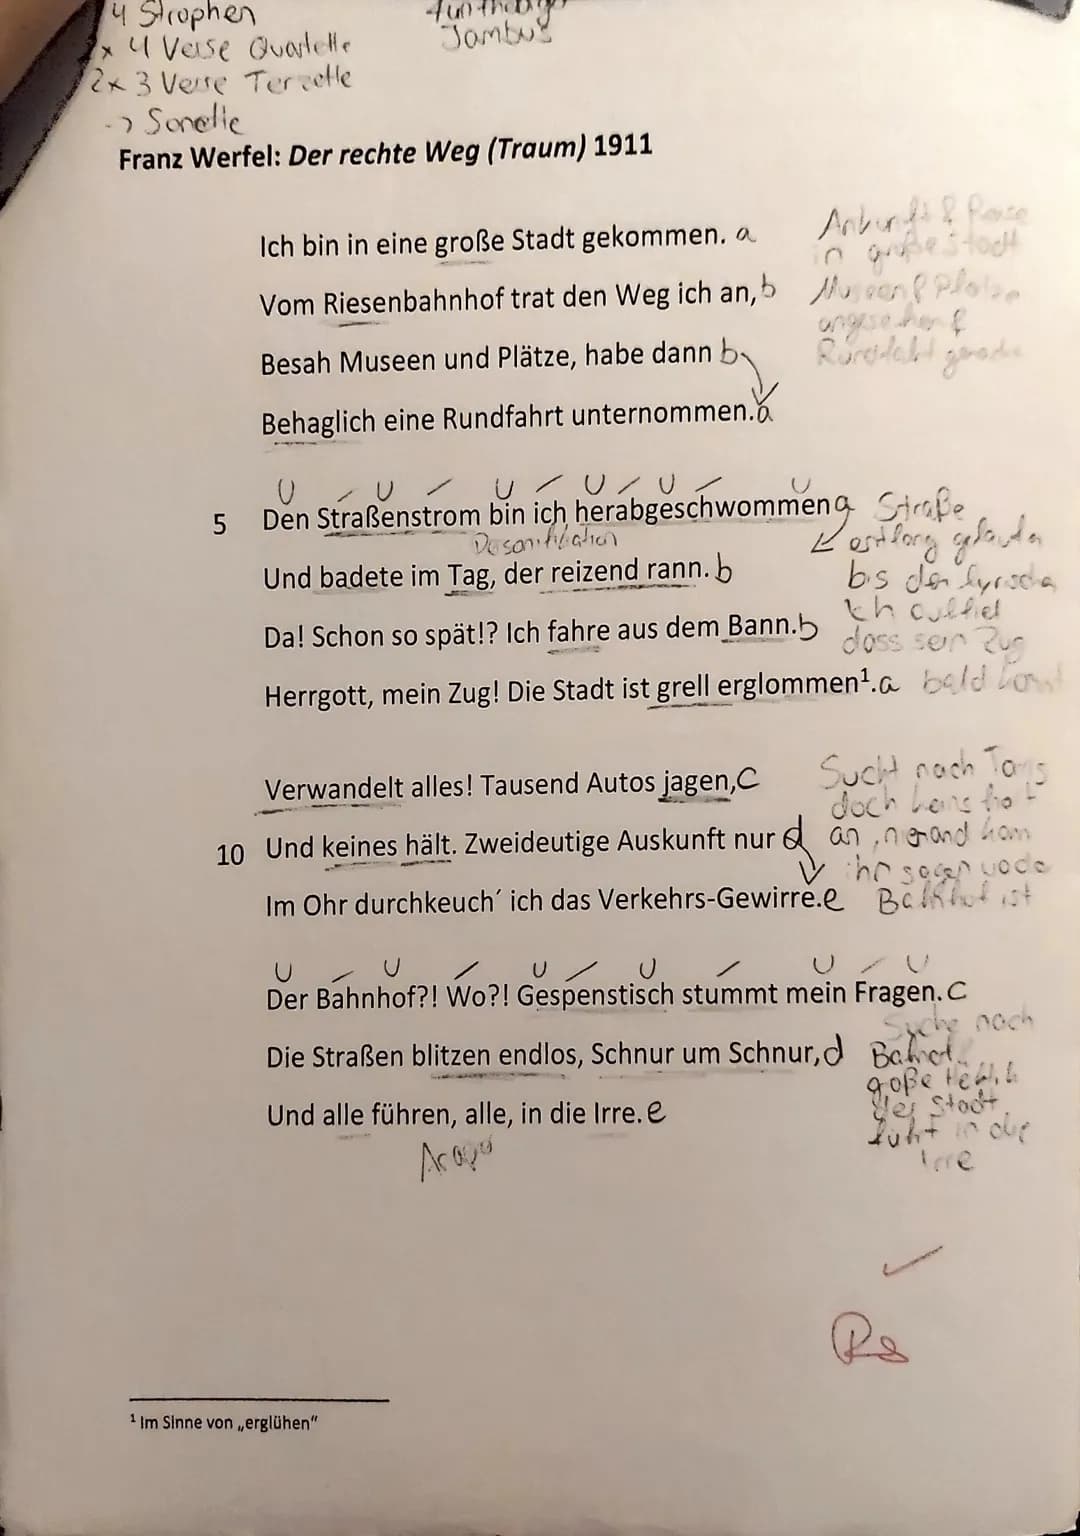 4 Strophen
x 4 Verse Quartette
2x 3 Verse Terzette
-> Sonette
fünfhebiger
Jambus
Franz Werfel: Der rechte Weg (Traum) 1911
Ich bin in eine große Stadt gekommen. a
Vom Riesenbahnhof trat den Weg ich an, b
Besah Museen und Plätze, habe dann b
Behaglich eine Rundfahrt unternommen. a
Ankunft & Reise
in große Stadt
Museen & Plätze
angesehen &
Rundfahrt gemacht
5 Den Straßenstrom bin ich herabgeschwommen a
Personifikation
Und badete im Tag, der reizend rann. b
Da! Schon so spät!? Ich fahre aus dem Bann. b
Herrgott, mein Zug! Die Stadt ist grell erglommen¹. a
Straße
entlang gelaufen
bis den lyrische
Ich auffiel
dass sein Zug
bald kommt
Verwandelt alles! Tausend Autos jagen, C
10 Und keines hält. Zweideutige Auskunft nur d
Im Ohr durchkeuch´ ich das Verkehrs-Gewirre. e
Sucht nach Taxis
doch keins hält
an, niemand kann
ihr sagen wo der
Bahnhof ist
Der Bahnhof?! Wo?! Gespenstisch stummt mein Fragen. C
Die Straßen blitzen endlos, Schnur um Schnur, d
Und alle führen, alle, in die Irre. e
Suche nach
Bahnhof
große
der Stadt
führt in die
Irre
¹ Im Sinne von „erglühen"